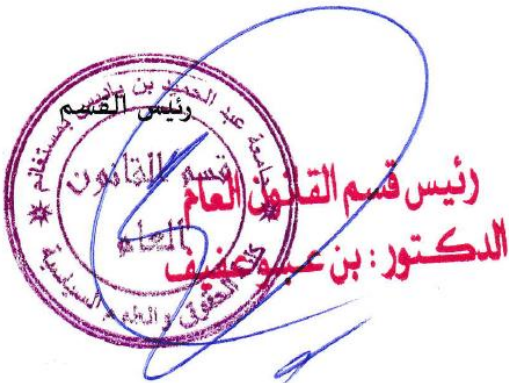 رئيس القسم
جامعة عبد الحميد بن باديس بمستغانم
قسم القانون
العام
كلية الحقوق و العلوم السياسية
رئيس قسم القانون العام
الدكتور : بن عبو عفيف